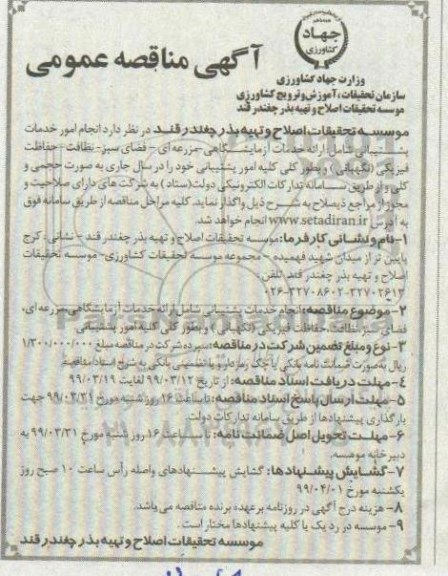 جهاد
کشاورزی
آگهی مناقصه عمومی
وزارت جهاد کشاورزی
سازمان تحقیقات، آموزش و ترویج کشاورزی
موسسه تحقیقات اصلاح و تهیه بذر چغندر قند
موسسـه تحقیقـات اصلاح و تهیه بـذر چغندر قنـد در نظر دارد انجام امور خدمات
پشـتیبانی شامل ارائه خدمات آزمایشـگاهی -مزرعه ای - فضای سبز - نظافت - حفاظت
فیزیکی (نگهبانی ) و بطور کلی کلیه امور پشتیبانی خود را در سال جاری به صورت حجمی و
کلی و از طریق سـامانه تدارکات الکترونیکی دولت (ستاد ) به شرکت های دارای صلاحیت و
مجوز از مراجع ذیصلاح به شـرح ذیل واگذار نماید. کلیه مراحل مناقصه از طریق سامانه فوق
به آدرس www.setadiran.ir انجام خواهد شد.
۱- نام و نشـانی کارفرما: موسسه تحقیقات اصلاح و تهیه بذر چغندر قند - نشانی: کرج
پایین تر از میدان شهید فهمیده - مجموعه موسسه تحقیقات کشاورزی- موسسه تحقیقات
اصلاح و تهیه بذر چغندر قند، تلفن:
۰۲۶-۳۲۷۰۸۶۰۲-۳۲۷۰۲۶۱۳
۲- موضوع مناقصه: انجام خدمات پشتیبانی شامل ارائه خدمات آزمایشگاهی، مزرعه ای،
فضای سبز، نظافت، حفاظت فیزیکی (نگهبانی ) و بطور کلی کلیه امور پشتیبانی.
۳- نوع و مبلغ تضمین شرکت در مناقصه: سپرده شرکت در مناقصه مبلغ ۱/۳۰۰/۰۰۰/۰۰۰
ریال به صورت ضمانت نامه بانکی یا چک رمزدار و یا فیش بانکی به شرح اسناد مناقصه.
٤- مهلت دریافت اسناد مناقصه: از تاریخ ۹۹/۰۳/۱۲ لغایت ۹۹/۰۳/۱۹
۵- مهلت ارسال پاسخ اسناد مناقصه: تا ساعت ۱۶ روز شنبه مورخ ۹۹/۰۳/۳۱ جهت
بارگذاری پیشنهادها از طریق سامانه تدارکات دولت.
۶- مهلـت تحویل اصل ضمانت نامه: تا سـاعت ۱۶ روز شنبه مورخ ۹۹/۰۳/۳۱ به
دبیرخانه موسسه.
۷- گشـایش پیشنهادها: گشایش پیشـنهادهای واصله رأس ساعت ۱۰ صبح روز
یکشنبه مورخ ۹۹/۰۴/۰۱
۸- هزینه درج آگهی در روزنامه بر عهده برنده مناقصه می باشد.
۹- موسسه در رد یک یا کلیه پیشنهادها مختار است .
موسسه تحقیقات اصلاح و تهیه بذر چغندر قند